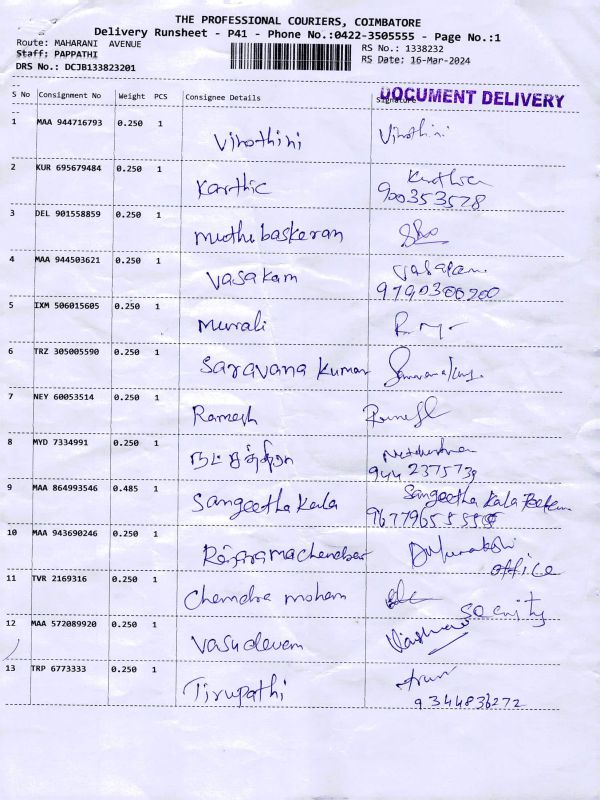 THE PROFESSIONAL COURIERS, COIMBATORE
Delivery Runsheet - P41 - Phone No.:0422-3505555 - Page No.:1
Route: MAHARANI AVENUE
RS No.: 1338232
Staff: PAPPATHI
RS Date: 16-Mar-2024
DRS No.: DCJB133823201
DOCUMENT DELIVERY
S No Consignment No Weight PCS Consignee Details Signature
1 MAA 944716793 0.250 1 Virothini Virothini
2 KUR 695679484 0.250 1 Karthic Karthic
900353578
3 DEL 901558859 0.250 1 muthu baskaran
4 MAA 944503621 0.250 1 Vasakam
5 IXM 506015605 0.250 1 Murali
6 TRZ 305005590 0.250 1 Saravana kumar
7 NEY 60053514 0.250 1 Ramesh Ramesh
8 MYD 7334991 0.250 1
9442375739
9 MAA 864993546 0.485 1 Sangeetha Kala Sangeetha Kala
10 MAA 943690246 0.250 1
office
11 TVR 2169316 0.250 1 Chandra mohan
12 MAA 572089920 0.250 1 Vasudevan
13 TRP 6773333 0.250 1 Tirupathi
9344836272